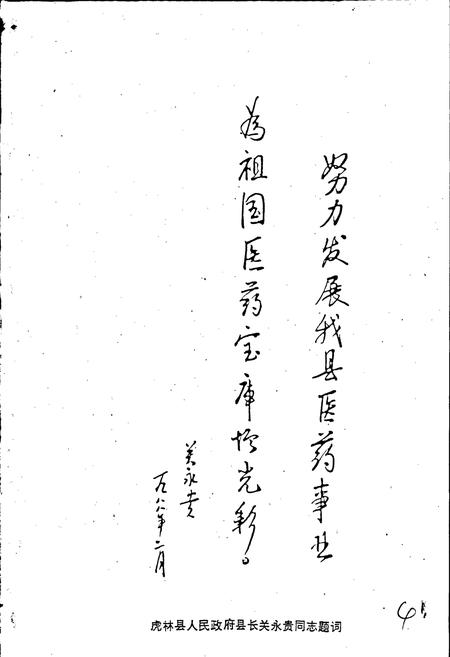 努力发展我县医药事业
为祖国医药宝库增光彩。
关永贵
一九八八年二月
虎林县人民政府县长关永贵同志题词
4